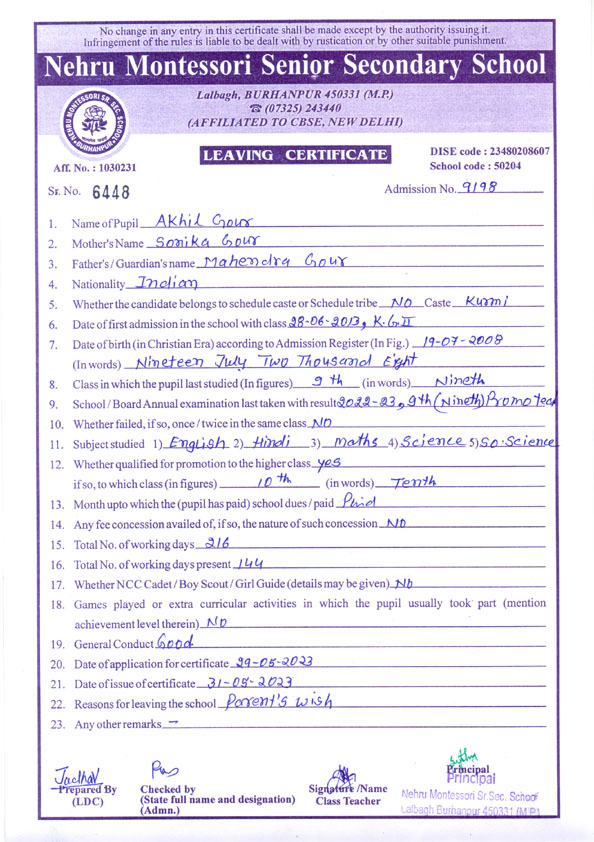 No change in any entry in this certificate shall be made except by the authority issuing it.
Infringement of the rules is liable to be dealt with by rustication or by other suitable punishment.
Nehru Montessori Senior Secondary School
Lalbagh, BURHANPUR 450331 (M.P.)
☎ (07325) 243440
(AFFILIATED TO CBSE, NEW DELHI)
NEHRU MONTESSORI SR. SEC. SCHOOL
BURHANPUR
LEAVING CERTIFICATE
DISE code : 23480208607
Aff. No. : 1030231
School code : 50204
Sr. No. 6448
Admission No. 9198
1. Name of Pupil Akhil Gour
2. Mother's Name Sonika Gour
3. Father's / Guardian's name Mahendra Gour
4. Nationality Indian
5. Whether the candidate belongs to schedule caste or Schedule tribe NO Caste Kurmi
6. Date of first admission in the school with class 28-06-2013, K.G II
7. Date of birth (in Christian Era) according to Admission Register (In Fig.) 19-07-2008
(In words) Nineteen July Two Thousand Eight
8. Class in which the pupil last studied (In figures) 9th (in words) Nineth
9. School / Board Annual examination last taken with result 2022-23, 9th (Nineth) Promoted
10. Whether failed, if so, once / twice in the same class NO
11. Subject studied 1) English 2) Hindi 3) maths 4) Science 5) SO.Science
12. Whether qualified for promotion to the higher class yes
if so, to which class (in figures) 10th (in words) Tenth
13. Month upto which the (pupil has paid) school dues / paid Paid
14. Any fee concession availed of, if so, the nature of such concession NO
15. Total No. of working days 216
16. Total No. of working days present 144
17. Whether NCC Cadet / Boy Scout / Girl Guide (details may be given) No
18. Games played or extra curricular activities in which the pupil usually took part (mention
achievement level therein) NO
19. General Conduct Good
20. Date of application for certificate 29-05-2023
21. Date of issue of certificate 31-05-2023
22. Reasons for leaving the school Parent's wish
23. Any other remarks —
Jadhav
Prepared By
(LDC)
Checked by
(State full name and designation)
(Admn.)
Signature /Name
Class Teacher
Principal
Principal
Nehru Montessori Sr.Sec. School
Lalbagh Burhanpur 450331 (M.P.)